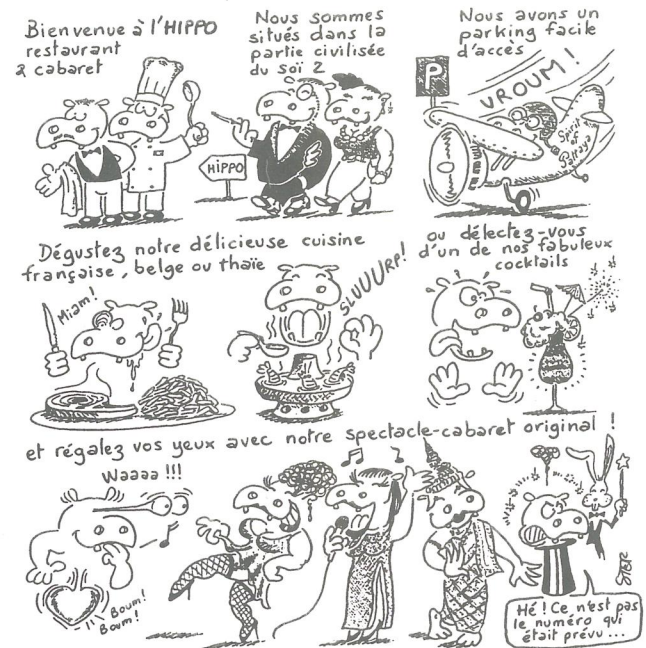 Bienvenue à l'HIPPO
restaurant
& cabaret
Nous sommes
situés dans la
partie civilisée
du soï 2
HIPPO
Nous avons un
parking facile
d'accès
P
VROUM !
Spirit
of
Pattaya
Dégustez notre délicieuse cuisine
française, belge ou thaïe
Miam !
SLUUURP!
ou délectez-vous
d'un de nos fabuleux
cocktails
et régalez vos yeux avec notre spectacle-cabaret original !
Waaaa !!!
Boum!
Boum!
Hé ! Ce n'est pas
le numéro qui
était prévu ...